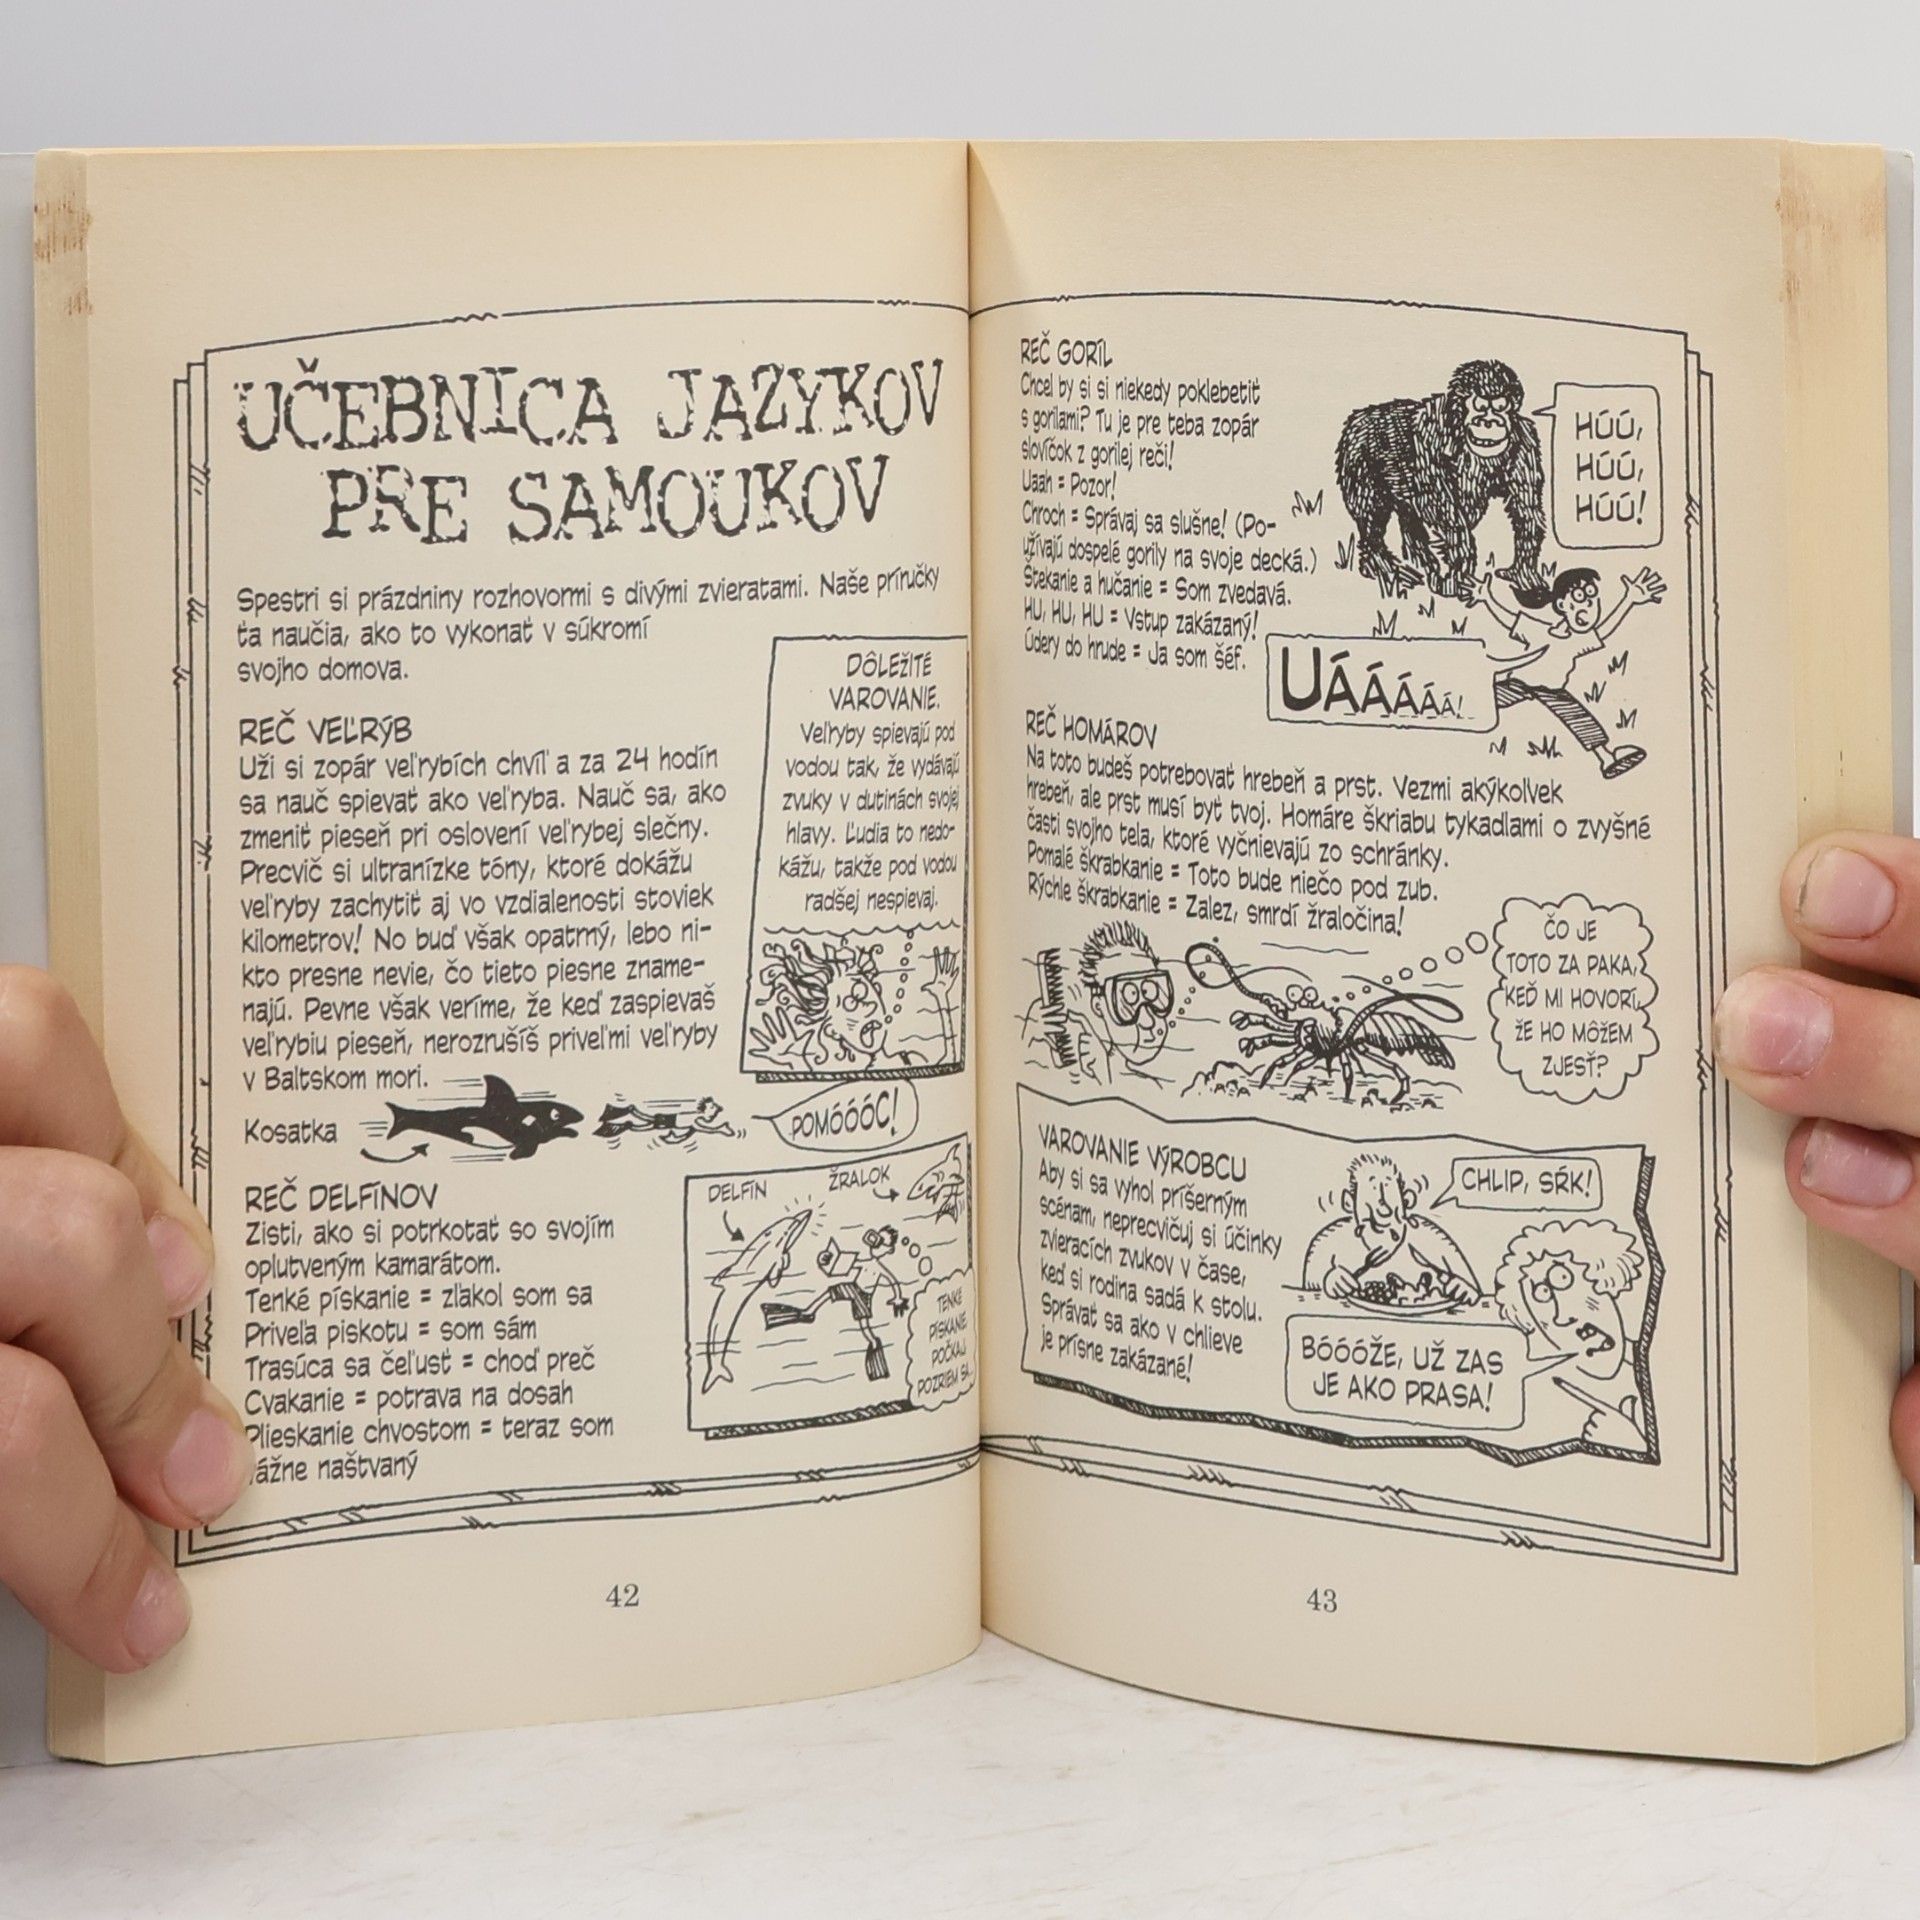 UČEBNICA JAZYKOV
PRE SAMOUKOV
Spestri si prázdniny rozhovormi s divými zvieratami. Naše príručky
ťa naučia, ako to vykonať v súkromí
svojho domova.
DÔLEŽITÉ
VAROVANIE.
Veľryby spievajú pod
vodou tak, že vydávajú
zvuky v dutinách svojej
hlavy. Ľudia to nedo-
kážu, takže pod vodou
radšej nespievaj.
REČ VEĽRÝB
Uži si zopár veľrybích chvíľ a za 24 hodín
sa nauč spievať ako veľryba. Nauč sa, ako
zmeniť pieseň pri oslovení veľrybej slečny.
Precvič si ultranízke tóny, ktoré dokážu
veľryby zachytiť aj vo vzdialenosti stoviek
kilometrov! No buď však opatrný, lebo ni-
kto presne nevie, čo tieto piesne zname-
najú. Pevne však veríme, že keď zaspievaš
veľrybiu pieseň, nerozrušíš priveľmi veľryby
v Baltskom mori.
Kosatka
POMÓÓÓC!
REČ DELFÍNOV
Zisti, ako si potrkotať so svojím
oplutveným kamarátom.
Tenké pískanie = zľakol som sa
Priveľa piskotu = som sám
Trasúca sa čeľusť = choď preč
Cvakanie = potrava na dosah
Plieskanie chvostom = teraz som
vážne naštvaný
DELFÍN
ŽRALOK
TENKÉ
PÍSKANIE.
POČKAJ,
POZRIEM SA...
42
REČ GORÍL
Chcel by si si niekedy poklebetiť
s gorilami? Tu je pre teba zopár
slovíčok z gorilej reči!
Uaah = Pozor!
Chroch = Správaj sa slušne! (Po-
užívajú dospelé gorily na svoje decká.)
Štekanie a hučanie = Som zvedavá.
HU, HU, HU = Vstup zakázaný!
Údery do hrude = Ja som šéf.
HÚÚ,
HÚÚ,
HÚÚ!
UÁÁÁÁÁ!
REČ HOMÁROV
Na toto budeš potrebovať hrebeň a prst. Vezmi akýkoľvek
hrebeň, ale prst musí byť tvoj. Homáre škriabu tykadlami o zvyšné
časti svojho tela, ktoré vyčnievajú zo schránky.
Pomalé škrabkanie = Toto bude niečo pod zub.
Rýchle škrabkanie = Zalez, smrdí žraločina!
ČO JE
TOTO ZA PAKA,
KEĎ MI HOVORÍ,
ŽE HO MÔŽEM
ZJESŤ?
VAROVANIE VÝROBCU
Aby si sa vyhol príšerným
scénam, neprecvičuj si účinky
zvieracích zvukov v čase,
keď si rodina sadá k stolu.
Správať sa ako v chlieve
je prísne zakázané!
CHLIP, SŔK!
BÓÓÓŽE, UŽ ZAS
JE AKO PRASA!
43